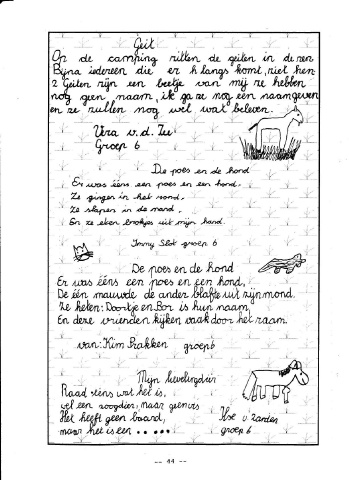 Geit
Op de camping zitten de geiten in de ren
Bijna iedereen die er langs komt, ziet hen
2 Geiten zijn een beetje van mij ze hebben
nog geen naam, ik ga ze nog een naam geven
en ze zullen nog wel wat beleven.
Vera v.d. Zee
Groep 6
De poes en de hond
Er was ééns een poes en een hond.
Ze gingen in het rond.
Ze slapen in de mand.
En ze eten brokjes uit mijn hand.
Immy Slot groep 6
De poes en de hond
Er was ééns een poes en een hond,
De één mauwde de ander blafte uit zijn mond.
Ze heten: Doortje en Bor is hun naam
En deze vrienden kijken vaak door het raam.
van: Kim Brakken groep 6
Mijn lievelingsdier
Raad eens wat het is.
wel een zoogdier, maar geen vis
Het heeft geen baard,
maar het is een . . . . .
Ilse v. Zanden
groep 6
-- 44 --